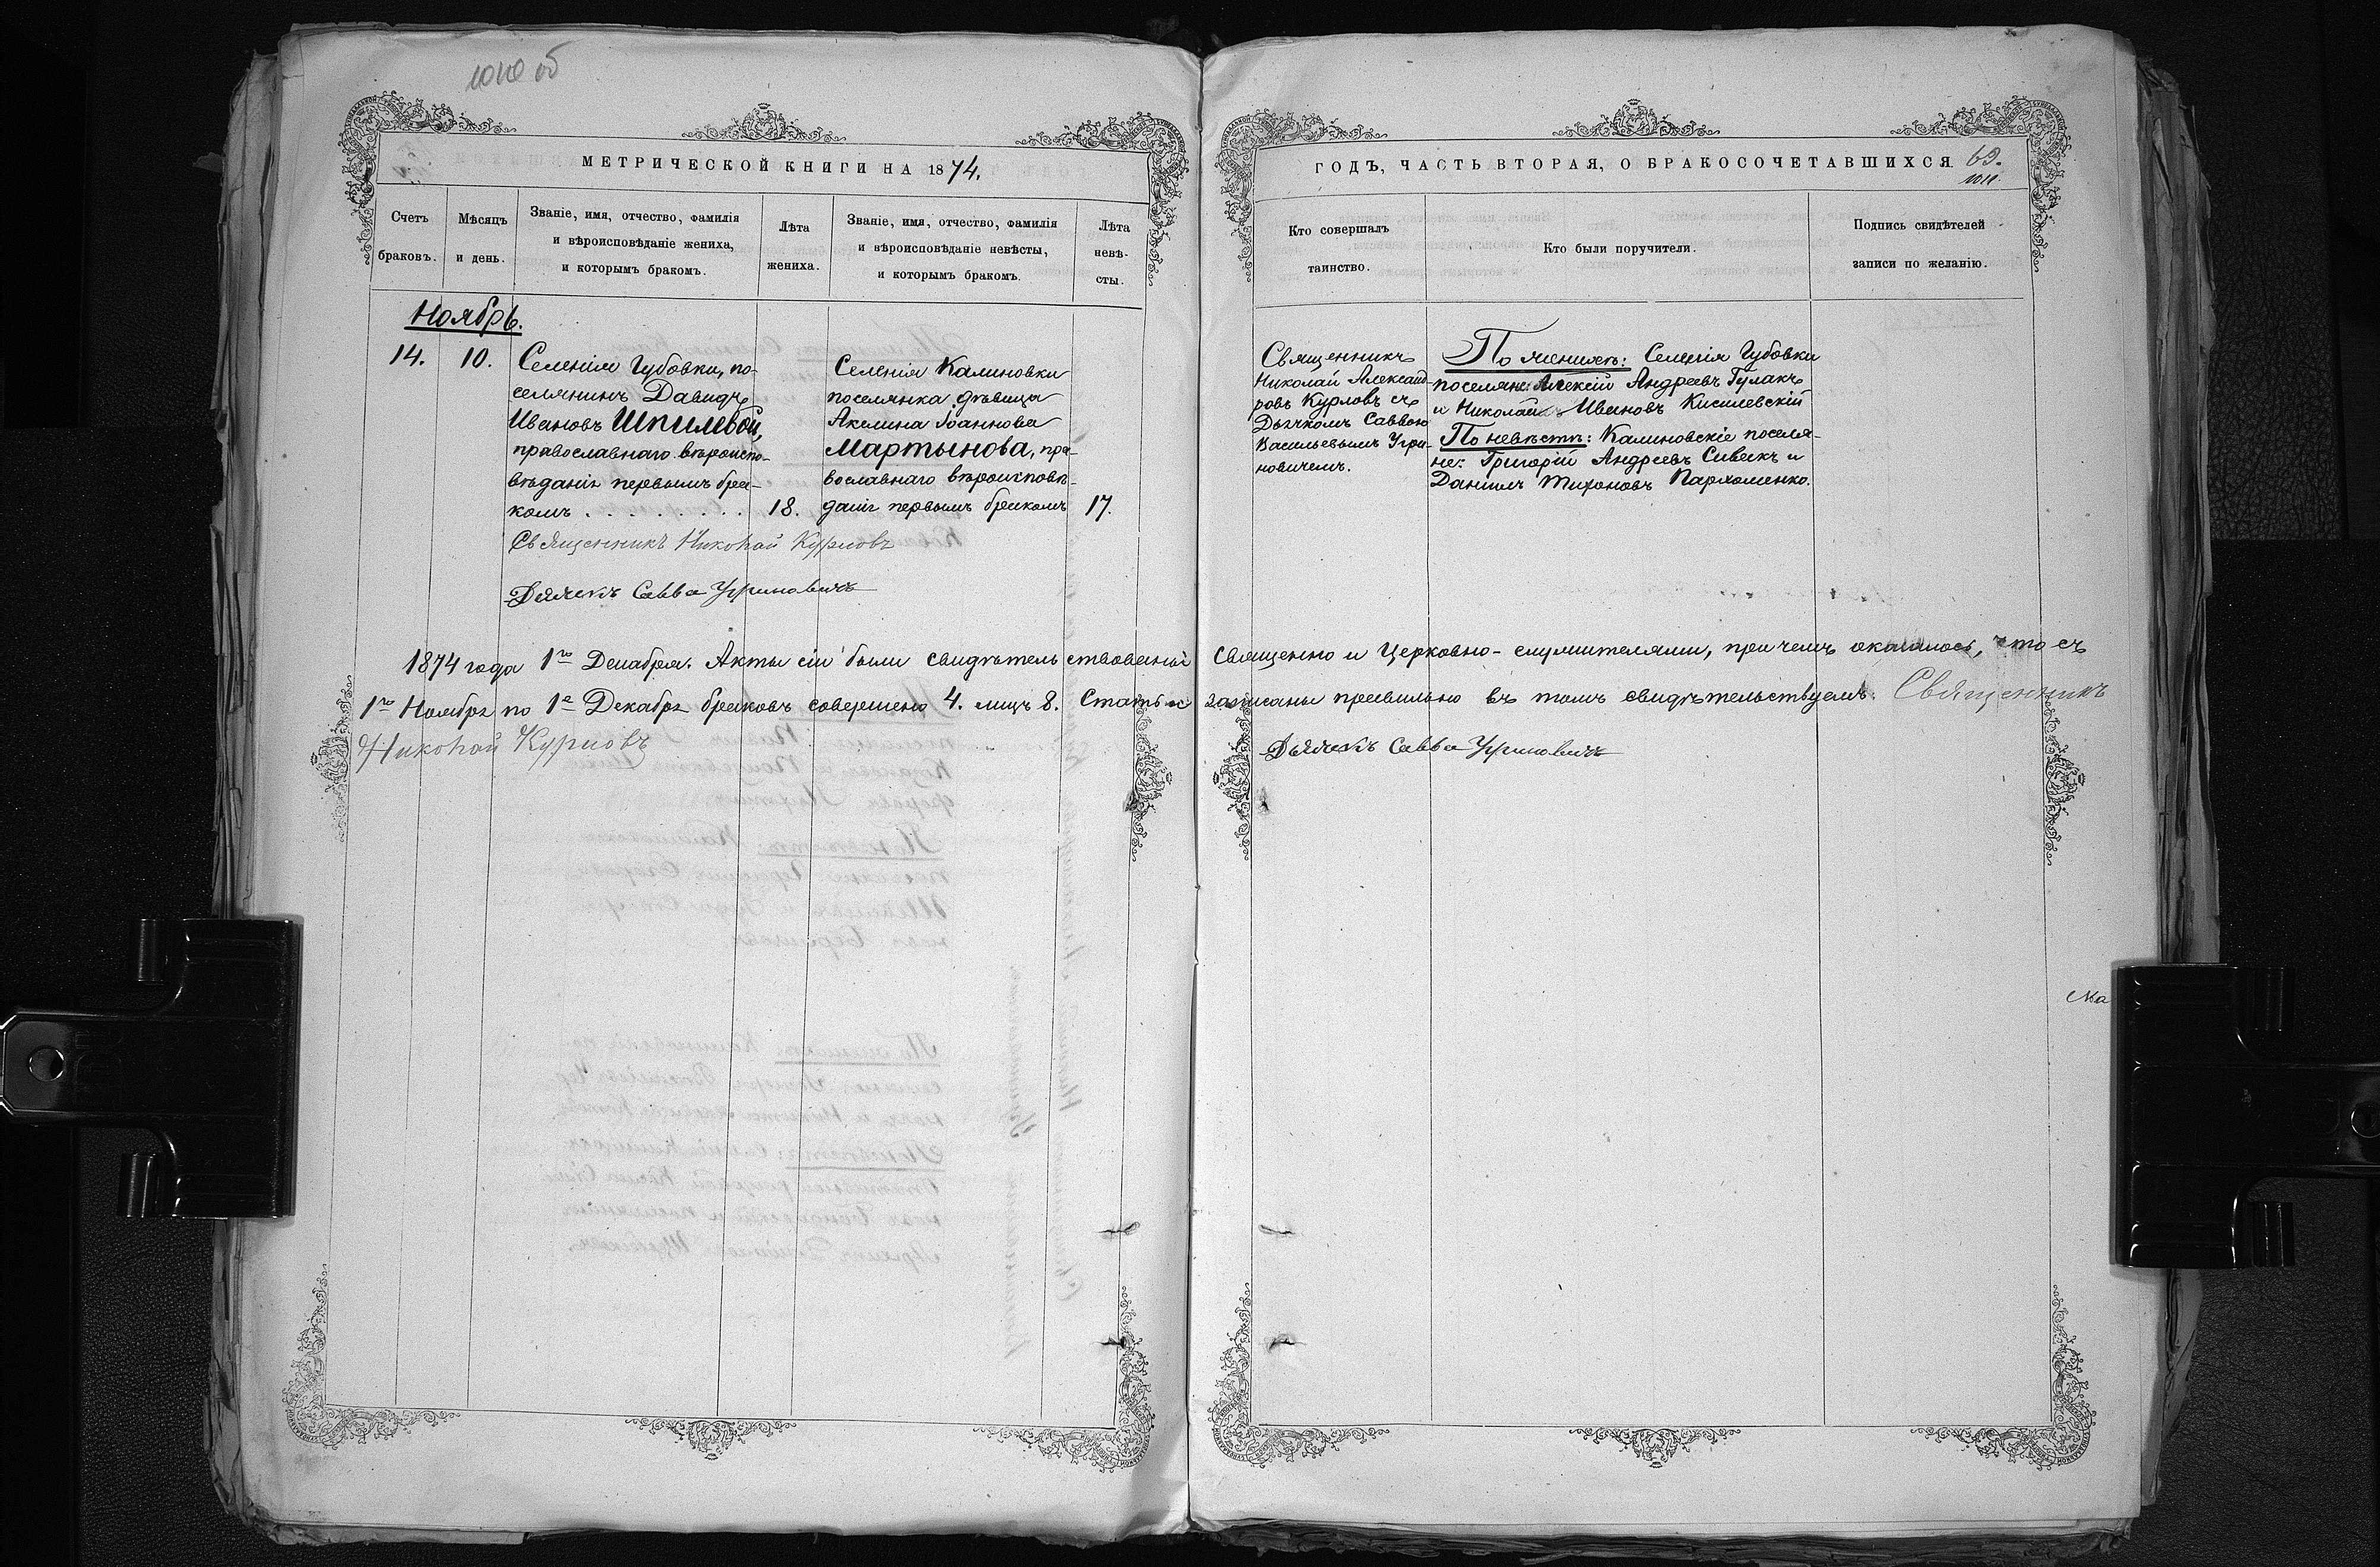 об
МЕТРИЧЕСКОЙ КНИГИ НА 1874.
Счетъ
браковъ.
Мѣсяцъ
и день.
Званіе, имя, отчество, фамилія
и вѣроисповѣданіе жениха,
и которымъ бракомъ.
Лѣта
жениха.
Званіе, имя, отчество, фамилія
и вѣроисповѣданіе невѣсты,
и которымъ бракомъ.
Лѣта
невѣ-
сты.
Ноябрь.
14.
10.
Селенія Губовки, по-
селянинъ Давидъ
Ивановъ Шпилевой,
православнаго вѣроиспо-
вѣданія первымъ бра-
комъ . . . . . . . .
18.
Селенія Калиновки
поселянка дѣвица
Акелина Іоаннова
Мартынова, пра-
вославнаго вѣроисповѣ-
данія первымъ бракомъ
17.
Священникъ Николай Курловъ
Дьячекъ Савва Угриновичъ
1874 года 1го Декабря. Акты сіи были свидѣтельствованы
1го Ноября по 1е Декабря браковъ совершено 4. лицъ 8. Статьи
Николай Курловъ
ГОДЪ, ЧАСТЬ ВТОРАЯ, О БРАКОСОЧЕТАВШИХСЯ. 69.
1011.
Кто совершалъ
таинство.
Кто были поручители.
Подпись свидѣтелей
записи по желанію.
Священникъ
Николай Александ-
ровъ Курловъ съ
Дьячкомъ Саввою
Васильевымъ Угри-
новичемъ.
По женихѣ: Селенія Губовки
поселяне: Алексій Андреевъ Гулакъ
и Николай Ивановъ Кисилевскій
По невѣстѣ: Калиновскіе поселя-
не: Григорій Андреевъ Сивакъ и
Даніилъ Тихоновъ Пархоменко.
священно и Церковно-служителями, при чемъ оказалось, что съ
записаны правильно въ томъ свидѣтельствуемъ. Священникъ
Дьячекъ Савва Угриновичъ